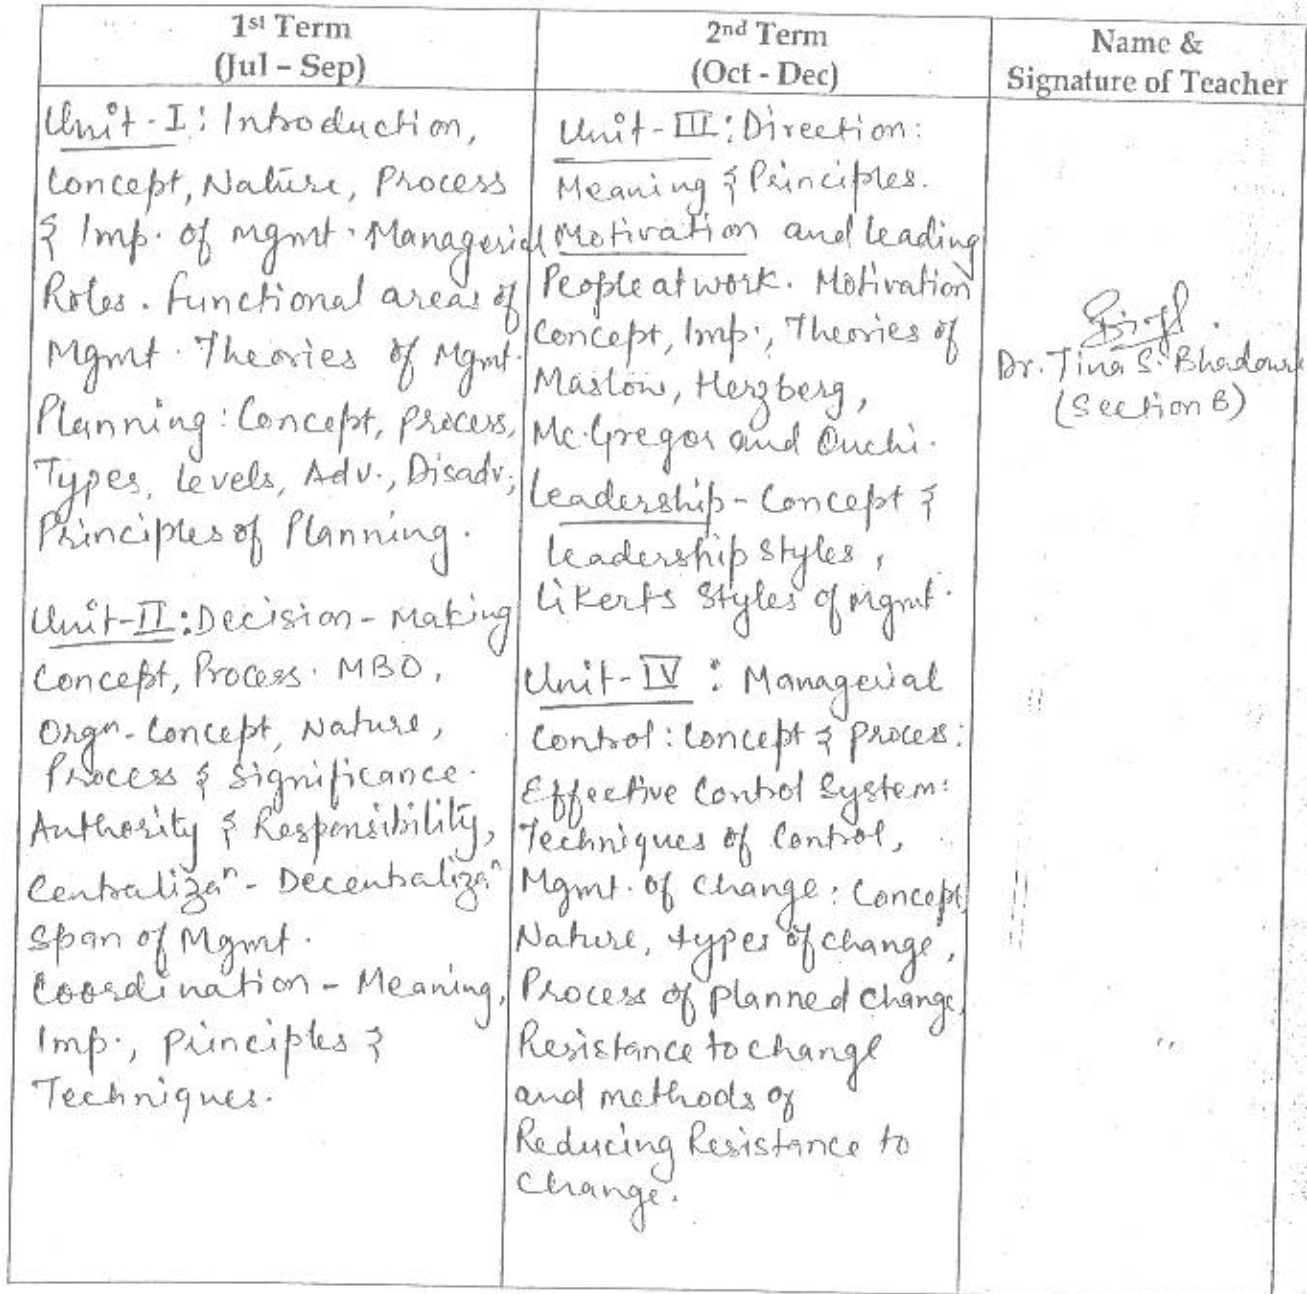 1st Term
(Jul – Sep)
2nd Term
(Oct - Dec)
Name &
Signature of Teacher
Unit - I : Introduction,
Concept, Nature, Process
& Imp. of mgmt. Managerial
Roles. functional areas of
Mgmt. Theories of Mgmt.
Planning : Concept, process,
Types, Levels, Adv., Disadv.,
Principles of Planning.
Unit-II : Decision - Making
Concept, Process. MBO,
Orgn. Concept, Nature,
Process & Significance.
Authority & Responsibility,
Centralizaⁿ - Decentralizaⁿ
Span of Mgmt.
Coordination - Meaning,
Imp., principles &
Techniques.
Unit-III : Direction :
Meaning & Principles.
Motivation and leading
People at work. Motivation
Concept, Imp., Theories of
Maslow, Herzberg,
Mc.Gregor and Ouchi.
Leadership - Concept &
leadership styles,
Likerts Styles of Mgmt.
Unit-IV : Managerial
Control : Concept & process :
Effective Control System :
Techniques of Control,
Mgmt. of change : Concept,
Nature, types of change,
Process of planned change,
Resistance to change
and methods of
Reducing Resistance to
Change.
Dr. Tina S.
(Section B)